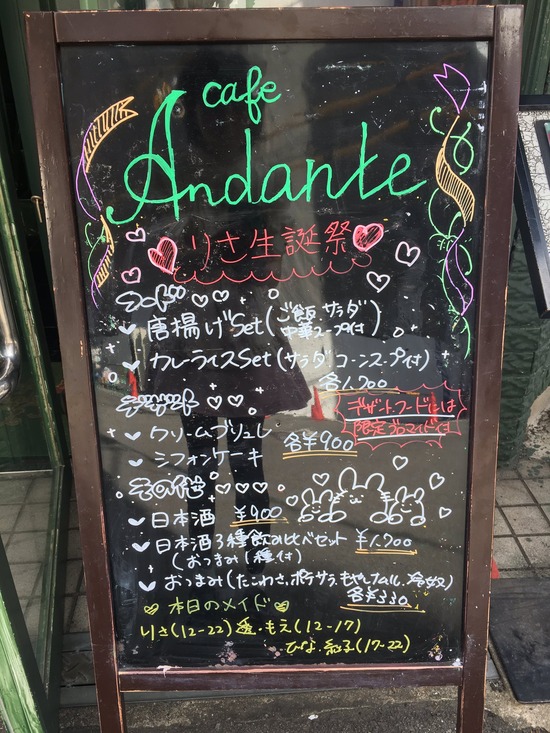 cafe
Andante
りさ生誕祭
フード
唐揚げSet(ご飯 サラダ
中華スープ付)
カレーライスSet(サラダ コーンスープ付)
各1,700
デザート
デザート・フードには
限定ブロマイド付
クリームブリュレ
各¥900
シフォンケーキ
その他
日本酒 ¥900
日本酒3種飲み比べセット ¥1,700
(おつまみ1種付)
おつまみ(たこわさ、ポテサラ、もやしナムル、冷奴)
各¥330
本日のメイド
りさ(12-22) 愛・もえ(12-17)
ひな・紅子(17-22)